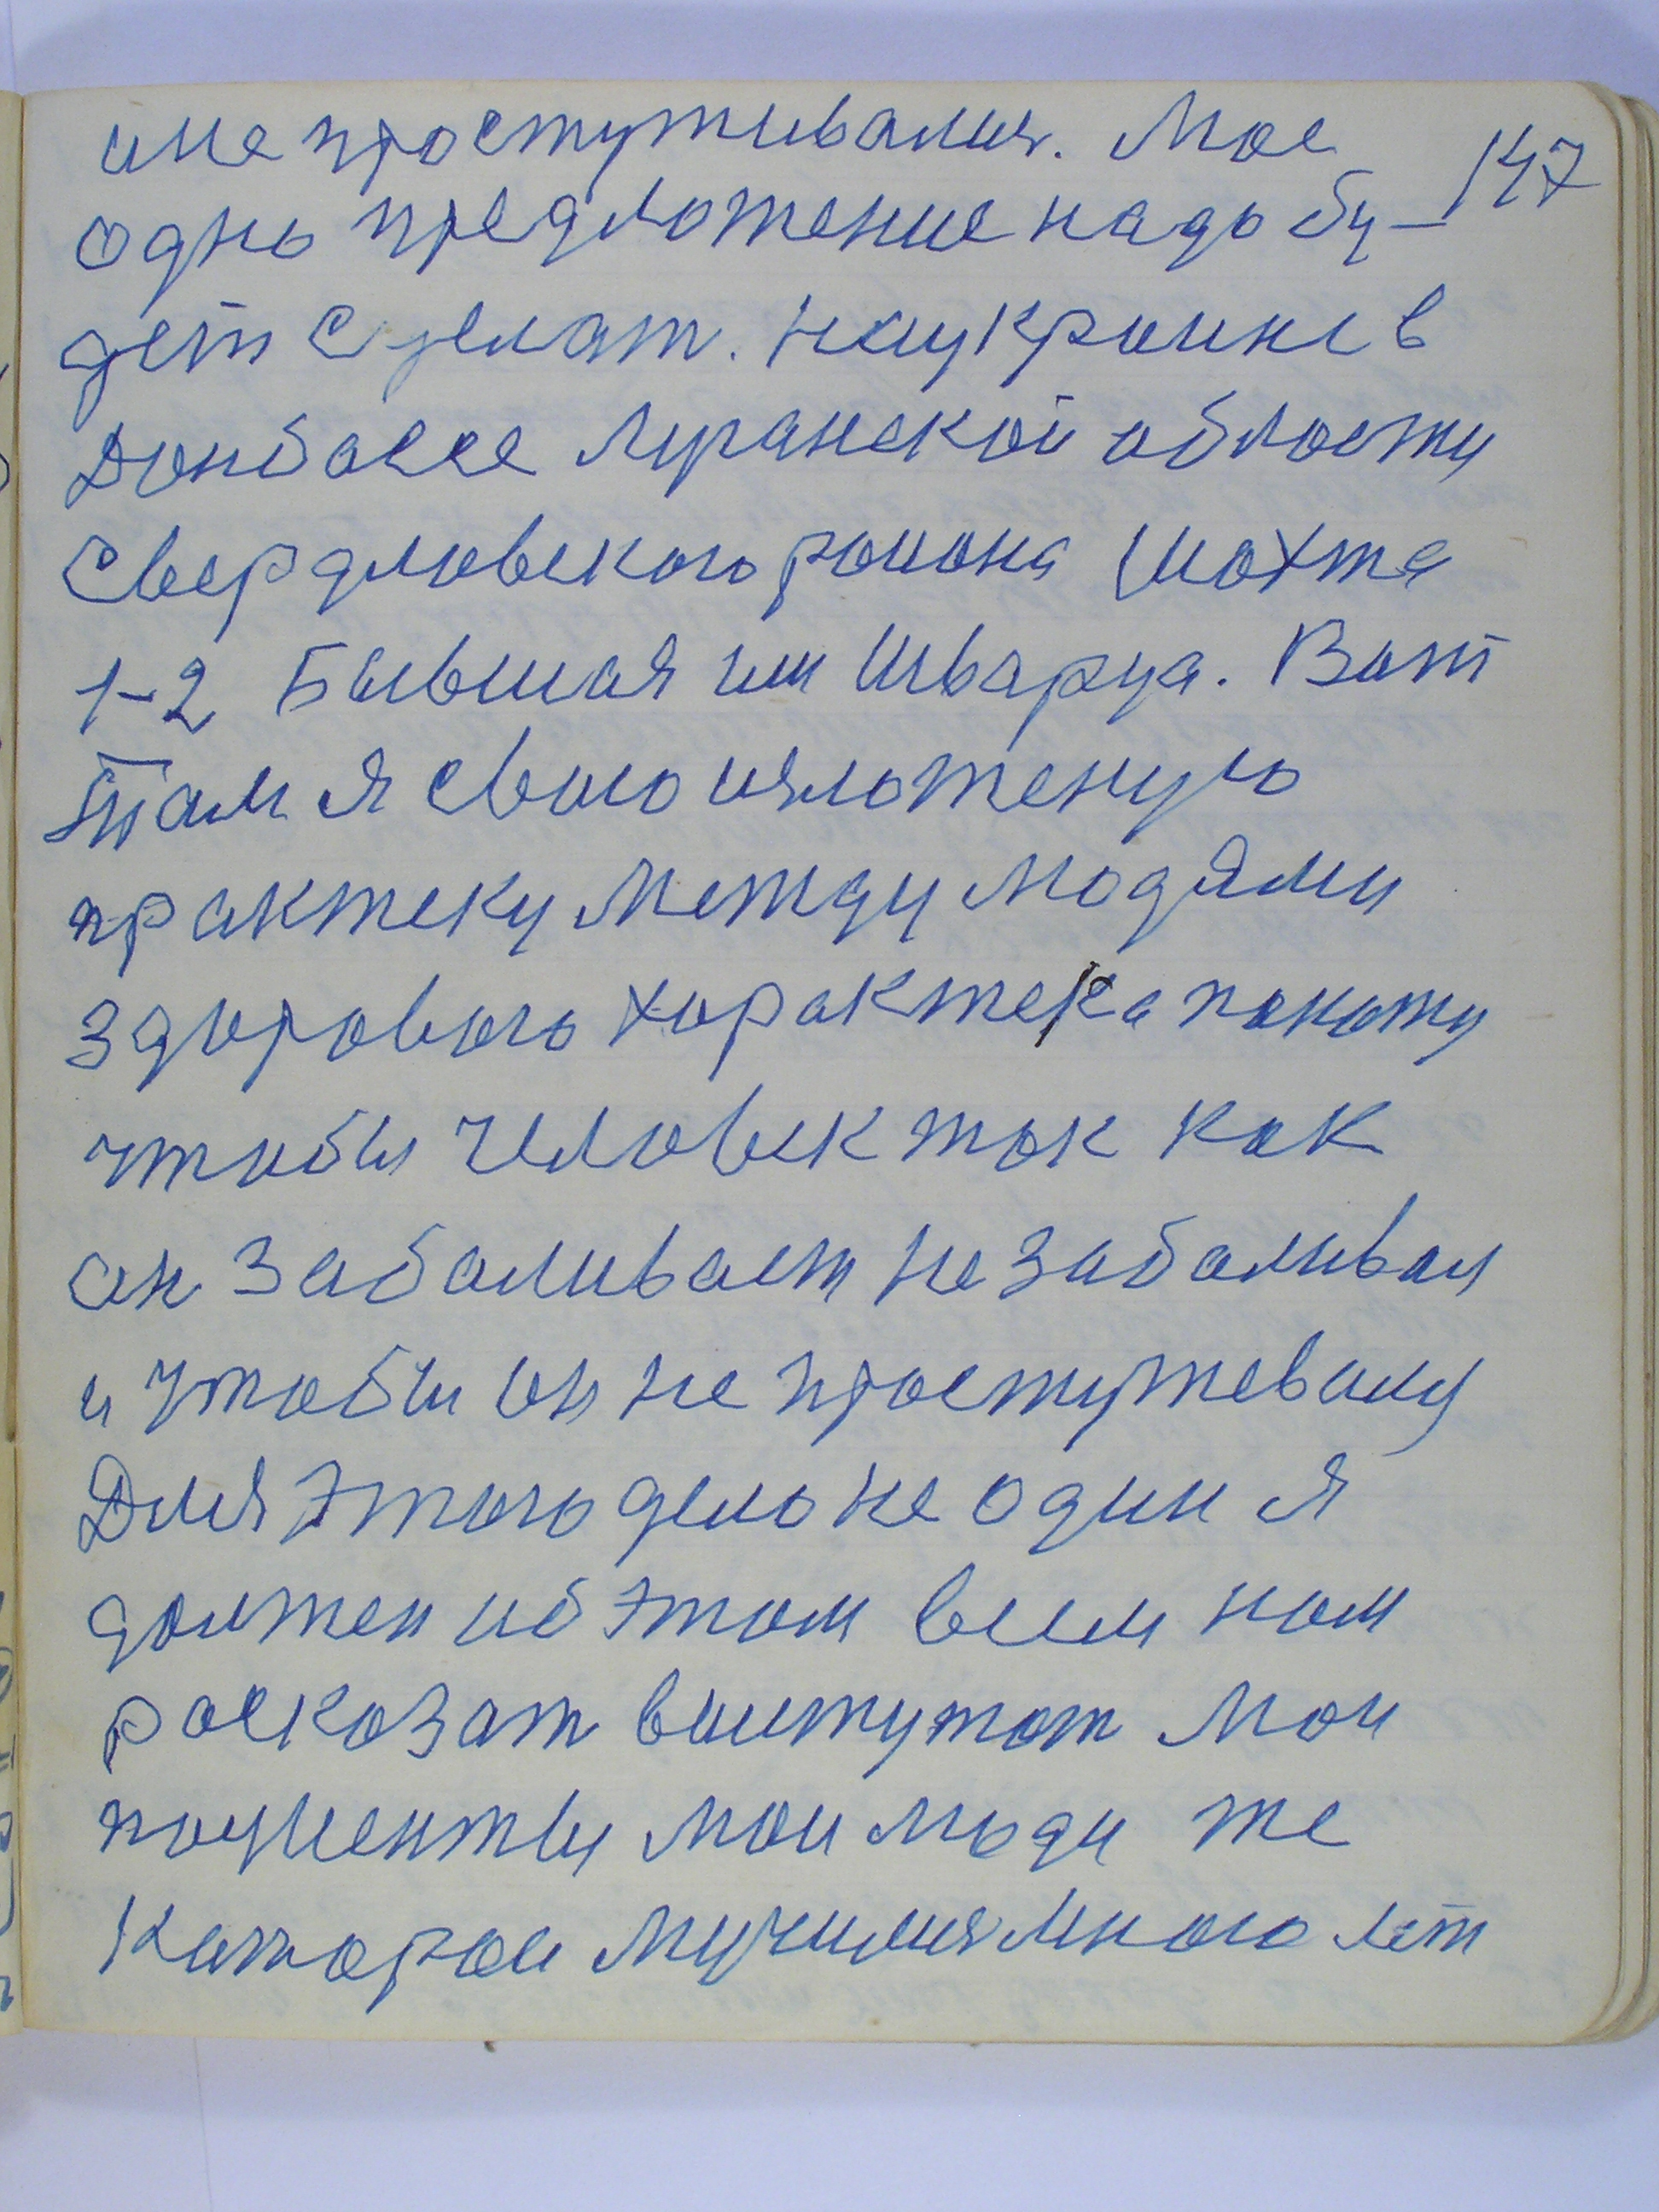 и не простуживались. Мое
147
одно предложение надо бу-
дет сделат. На украине в
Донбассе Луганской области
Свердловского района Шахта
1-2 Бывшая им Шварца. Вот
там я свою изложеную
практеку между людями
здорового характера
чтобы человек так как
он забаливает не забаливал
и чтобы он не простужевался
Для этого дело не один я
должен об этом всем нам
расказат мои
пациенты мои люди же
каторои мучились много лет